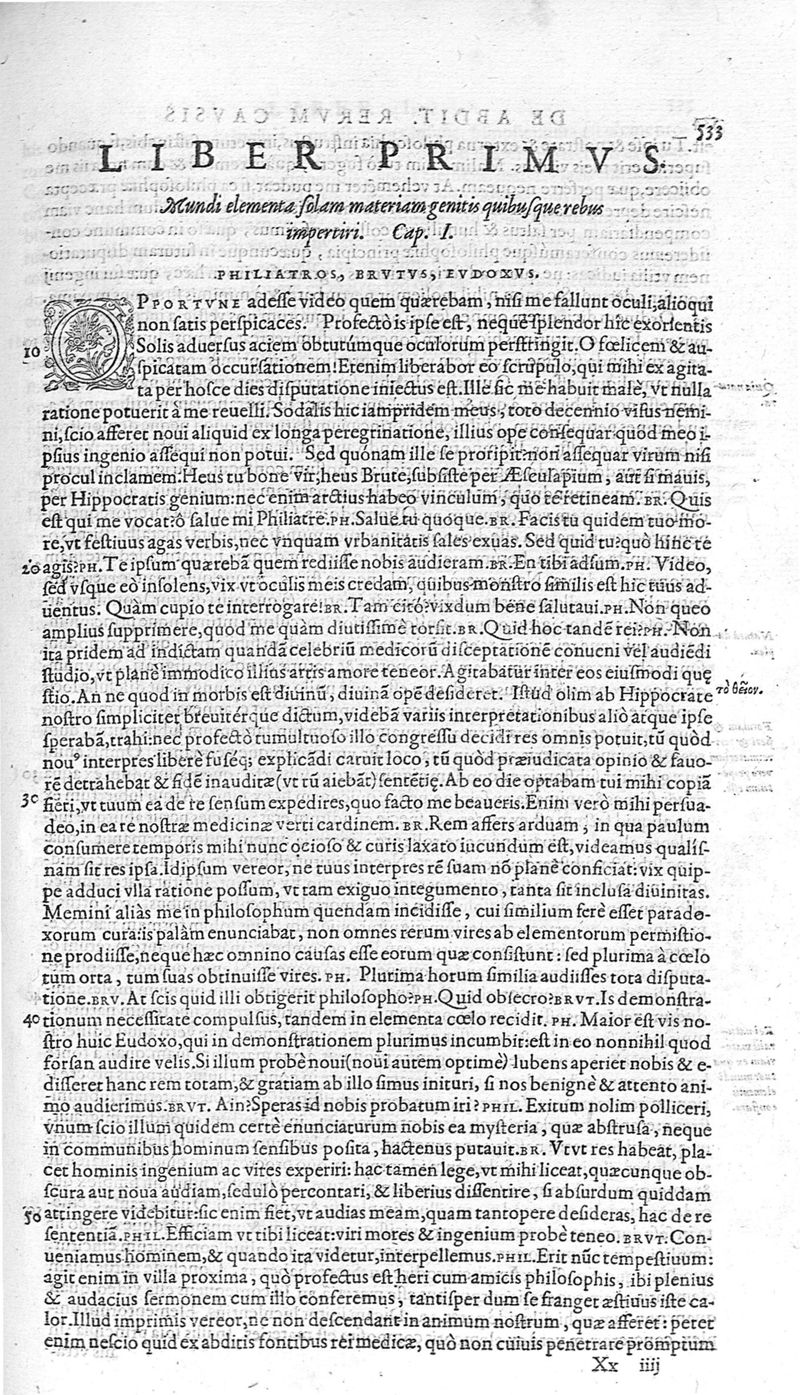 533
LIBER PRIMVS.
Mundi elementa solam materiam genitis quibusque rebus
impertiri. Cap. I.
PHILIATROS, BRVTVS, EVDOXVS.
OPPORTVNE adesse video quem quærebam, nisi me fallunt oculi, alioqui
non satis perspicaces. Profectò is ipse est, neque splendor hic exorientis
10 Solis aduersus aciem obtutúmque oculorum perstringit. O fœlicem & au-
spicatam occursationem! Etenim liberabor eo scrupulo, qui mihi ex agita-
ta per hosce dies disputatione iniectus est. Ille sic me habuit malè, vt nulla
ratione potuerit à me reuelli. Sodalis hic iampridem meus, toto decennio visus nemi-
ni, scio afferet noui aliquid ex longa peregrinatione, illius ope consequar quod meo i-
psius ingenio assequi non potui. Sed quónam ille se proripit? non assequar virum nisi
procul inclamem. Heus tu bone vir, heus Brute, subsiste per Æsculapium, aut si mauis,
per Hippocratis genium: nec enim arctius habeo vinculum, quo te retineam. BR. Quis
est qui me vocat? ô salue mi Philiatre. PH. Salue tu quoque. BR. Facis tu quidem tuo mo-
re, vt festiuus agas verbis, nec vnquam vrbanitatis sales exuas. Sed quid tu? quò hinc te
20 agis? PH. Te ipsum quærebã quem rediisse nobis audieram. BR. En tibi adsum. PH. Video,
sed vsque eò insolens, vix vt oculis meis credam, quibus monstro similis est hic tuus ad-
uentus. Quàm cupio te interrogare! BR. Tam citò? vixdum bene salutaui. PH. Non queo
amplius supprimere, quod me quàm diutissimè torsit. BR. Quid hoc tandẽ rei? PH. Non
ita pridem ad indictam quandã celebriũ medicorũ disceptationẽ conueni vel audiẽdi
studio, vt planè immodico illius artis amore teneor. Agitabatur inter eos eiusmodi quę
stio. An ne quod in morbis est diuinũ, diuinã opẽ desideret. Istud olim ab Hippocrate
τὸ θεῖον.
nostro simpliciter breuitérque dictum, videbã variis interpretationibus aliò atque ipse
sperabã, trahi: nec profectò tumultuoso illo congressu decidi res omnis potuit, tũ quòd
nouꝰ interpres liberè fuséq; explicãdi caruit loco, tũ quòd præiudicata opinio & fauo-
rẽ detrahebat & fidẽ inauditæ (vt tũ aiebãt) sentẽtię. Ab eo die optabam tui mihi copiã
30 fieri, vt tuum ea de re sensum expedires, quo facto me beaueris. Enim verò mihi persua-
deo, in ea re nostræ medicinæ verti cardinem. BR. Rem affers arduam, in qua paulum
consumere temporis mihi nunc ocioso & curis laxato iucundum est, videamus qualis-
nam sit res ipsa. Idipsum vereor, ne tuus interpres rẽ suam nõ planè conficiat: vix quip-
pe adduci vlla ratione possum, vt tam exiguo integumento, tanta sit inclusa diuinitas.
Memini aliàs me in philosophum quendam incidisse, cui similium ferè esset parado-
xorum cura: is palàm enunciabat, non omnes rerum vires ab elementorum permistio-
ne prodiisse, neque hæc omnino causas esse eorum quæ consistunt: sed plurima à cœlo
tum orta, tum suas obtinuisse vires. PH. Plurima horum similia audiisses tota disputa-
tione. BRV. At scis quid illi obtigerit philosopho? PH. Quid obsecro? BRVT. Is demonstra-
40 tionum necessitate compulsus, tandem in elementa cœlo recidit. PH. Maior est vis no-
stro huic Eudoxo, qui in demonstrationem plurimus incumbit: est in eo nonnihil quod
forsan audire velis. Si illum probè noui (noui autem optimè) lubens aperiet nobis & e-
disseret hanc rem totam, & gratiam ab illo simus inituri, si nos benignè & attento ani-
mo audierimus. BRVT. Ain? Speras id nobis probatum iri? PHIL. Exitum nolim polliceri,
vnum scio illum quidem certè enunciaturum nobis ea mysteria, quæ abstrusa, neque
in communibus hominum sensibus posita, hactenus putauit. BR. Vtvt res habeat, pla-
cet hominis ingenium ac vires experiri: hac tamen lege, vt mihi liceat, quæcunque ob-
scura aut noua audiam, sedulò percontari, & liberius dissentire, si absurdum quiddam
50 attingere videbitur: sic enim fiet, vt audias meam, quam tantopere desideras, hac de re
sententiã. PHIL. Efficiam vt tibi liceat: viri mores & ingenium probè teneo. BRVT. Con-
ueniamus hominem, & quando ita videtur, interpellemus. PHIL. Erit nũc tempestiuum:
agit enim in villa proxima, quò profectus est heri cum amicis philosophis, ibi plenius
& audacius sermonem cum illo conferemus, tantisper dum se franget æstiuus iste ca-
lor. Illud imprimis vereor, ne non descendant in animum nostrum, quæ afferet: petet
enim nescio quid ex abditis fontibus rei medicæ, quò non cuiuis penetrare promptum
Xx iiij